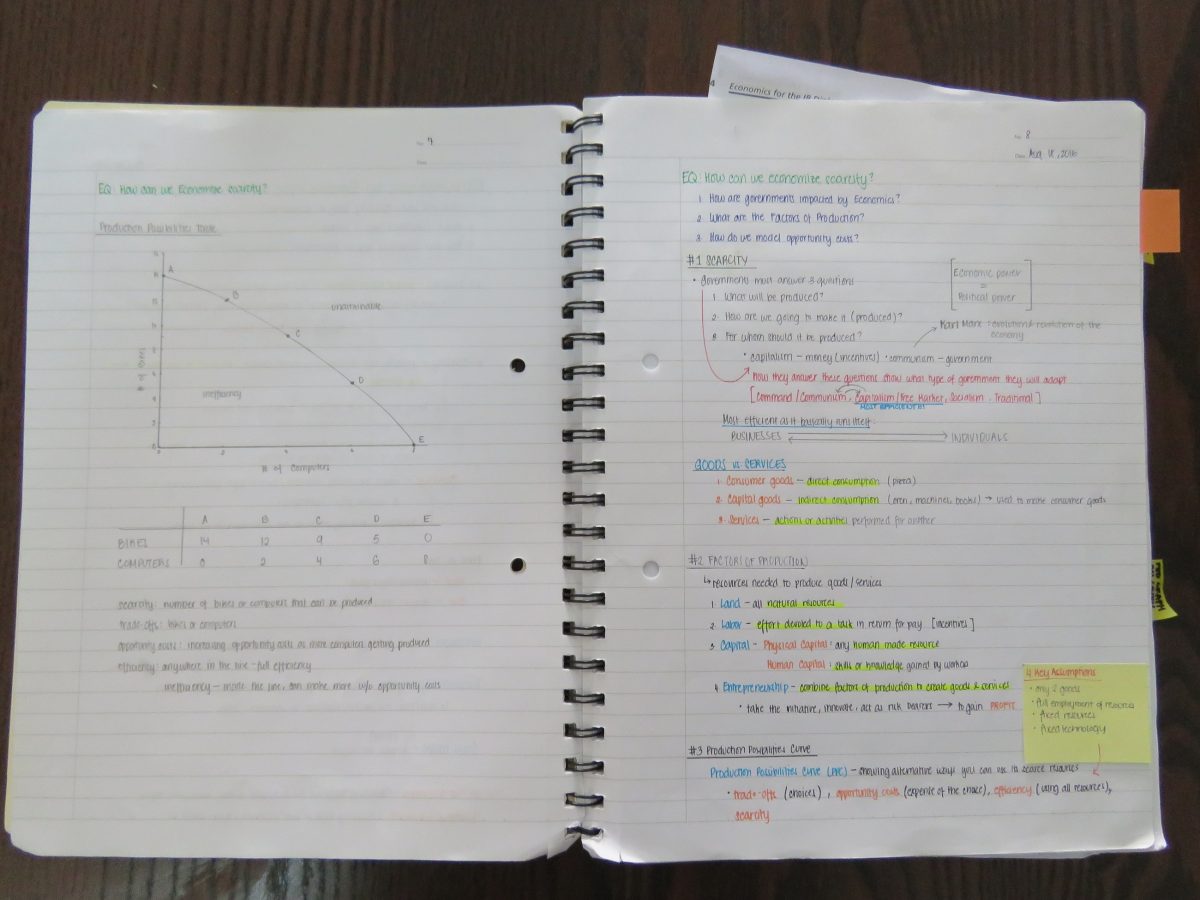 4 Economics for the IB
No 7
Date
EQ: How can we Economize scarcity?
Production Possibilities Table
A
B
unattainable
C
D
inefficiency
E
# of Bikes
# of Computers
A B C D E
BIKES 14 12 9 5 0
COMPUTERS 0 2 4 6 8
scarcity: number of bikes or computers that can be produced
trade-offs: bikes or computers
opportunity costs: increasing opportunity costs as more computers getting produced
efficiency: anywhere in the line - full efficiency
inefficiency - inside the line, can make more w/o opportunity costs
No 8
Date Aug 18, 2016
EQ: How can we economize scarcity?
1. How are governments impacted by Economics?
2. What are the Factors of Production?
3. How do we model opportunity costs?
#1 SCARCITY
• Governments must answer 3 questions
[Economic power
=
Political power]
1. What will be produced?
2. How are we going to make it (produced)?
Karl Marx: evolution/revolution of the
economy
3. For whom should it be produced?
• capitalism - money (incentives) • communism - government
how they answer these questions show what type of government they will adapt
[Command/Communism, Capitalism/Free Market, Socialism, Traditional]
MOST EFFICIENT!
Most efficient as it basically runs itself:
BUSINESSES INDIVIDUALS
GOODS vs. SERVICES
1. Consumer goods - direct consumption (pizza)
2. Capital goods - indirect consumption (oven, machines, books) → used to make consumer goods
3. Services - actions or activities performed for another
#2 FACTORS OF PRODUCTION
↳ resources needed to produce goods/services
1. Land - all natural resources
2. Labor - effort devoted to a task in return for pay [incentives]
3. Capital - Physical Capital: any human made resource
Human Capital: skills or knowledge gained by worker
4. Entrepreneurship - combine factors of production to create goods & services
• take the initiative, innovate, act as risk bearers → to gain PROFIT
4 Key Assumptions
• only 2 goods
• full employment of resources
• fixed resources
• fixed technology
#3 Production Possibilities Curve
Production Possibilities Curve (PPC) - showing alternative ways you can use its scarce resources
• trade-offs (choices), opportunity costs (expense of the choice), efficiency (using all resources),
scarcity